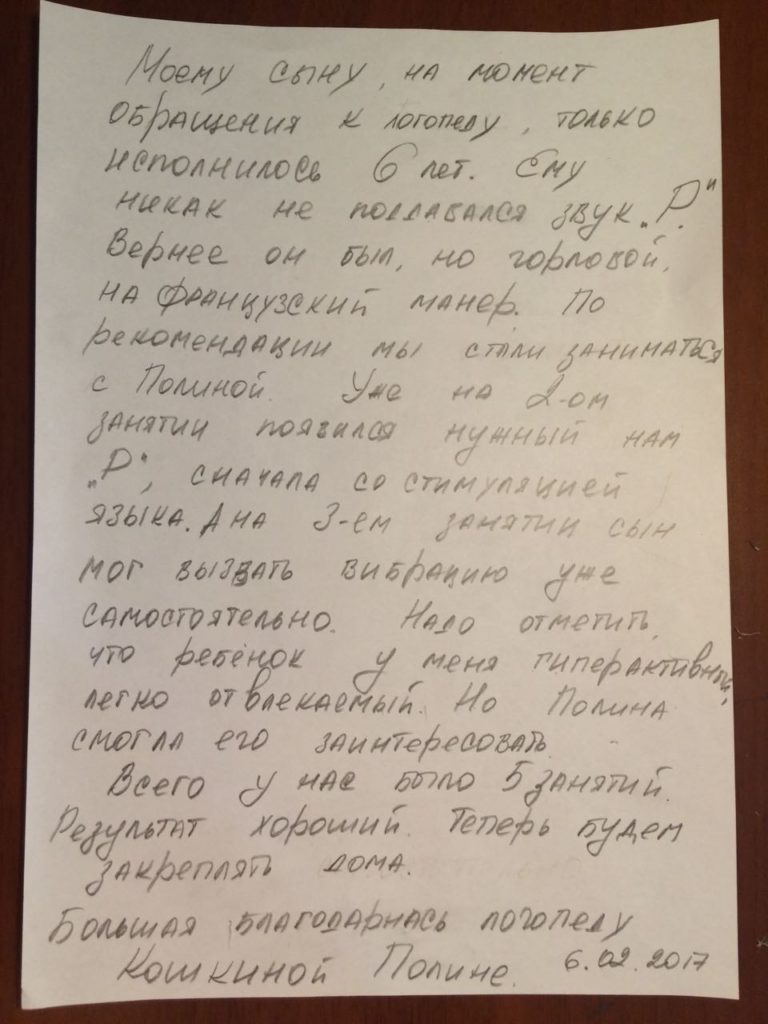 Моему сыну, на момент
обращения к логопеду, только
исполнилось 6 лет. Ему
никак не поддавался звук „Р".
Вернее он был, но горловой,
на французский манер. По
рекомендации мы стали заниматься
с Полиной. Уже на 2-ом
занятии появился нужный нам
„Р", сначала со стимуляцией
языка. А на 3-ем занятии сын
мог вызвать вибрацию уже
самостоятельно. Надо отметить,
что ребёнок у меня гиперактивный,
легко отвлекаемый. Но Полина
смогла его заинтересовать.
Всего у нас было 5 занятий.
Результат хороший. Теперь будем
закреплять дома.
Большая благодарнась логопеду
Кошкиной Полине. 6.02.2017